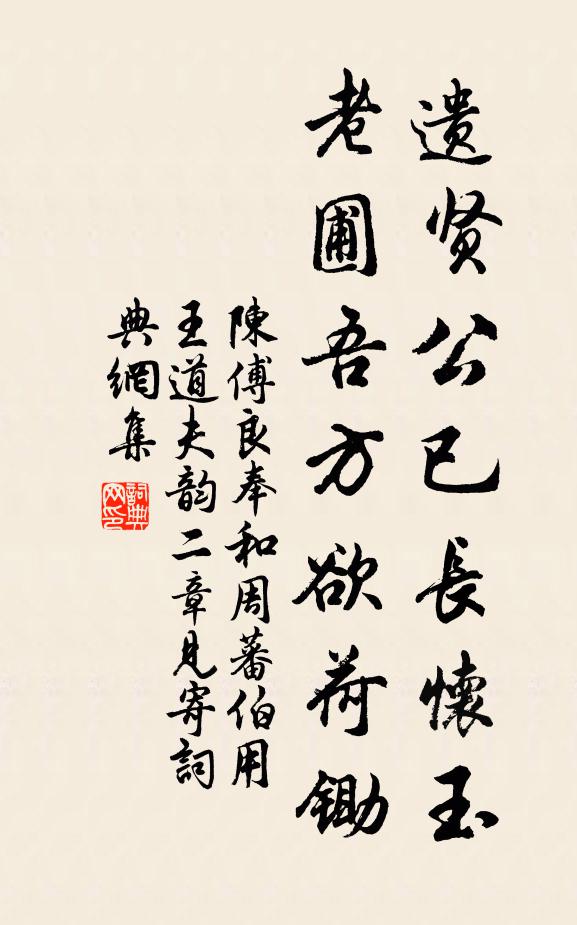 遗贤公已長懷玉
老圃吾方欲荷锄
陳傅良奉和周蕃伯用
王道夫韵二章見寄詞
典網集
詞典
网印